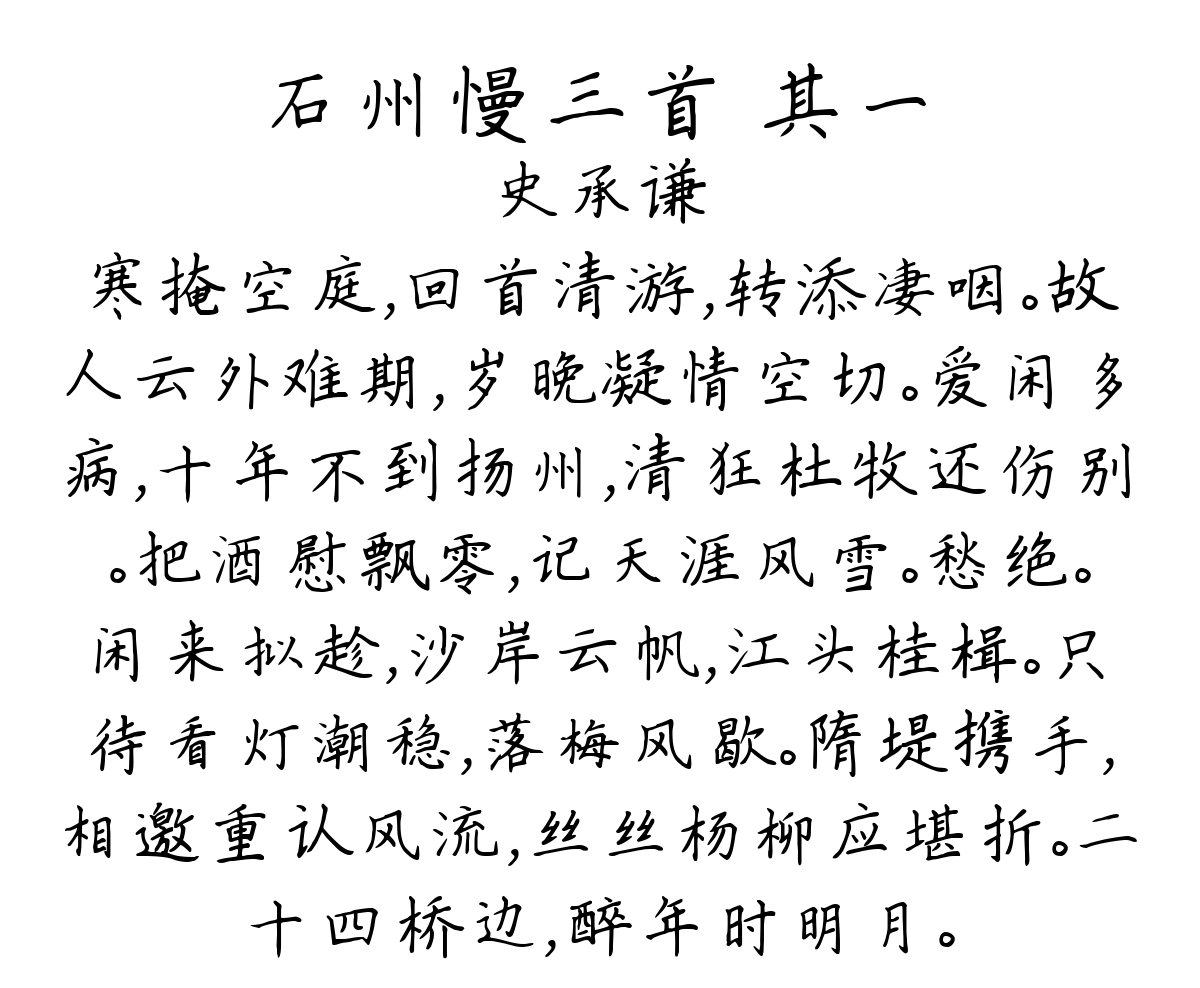 石州慢三首 其一
史承谦
寒掩空庭,回首清游,转添凄咽。故
人云外难期,岁晚凝情空切。爱闲多
病,十年不到扬州,清狂杜牧还伤别
。把酒慰飘零,记天涯风雪。愁绝。
闲来拟趁,沙岸云帆,江头桂楫。只
待看灯潮稳,落梅风歇。隋堤携手,
相邀重认风流,丝丝杨柳应堪折。二
十四桥边,醉年时明月。